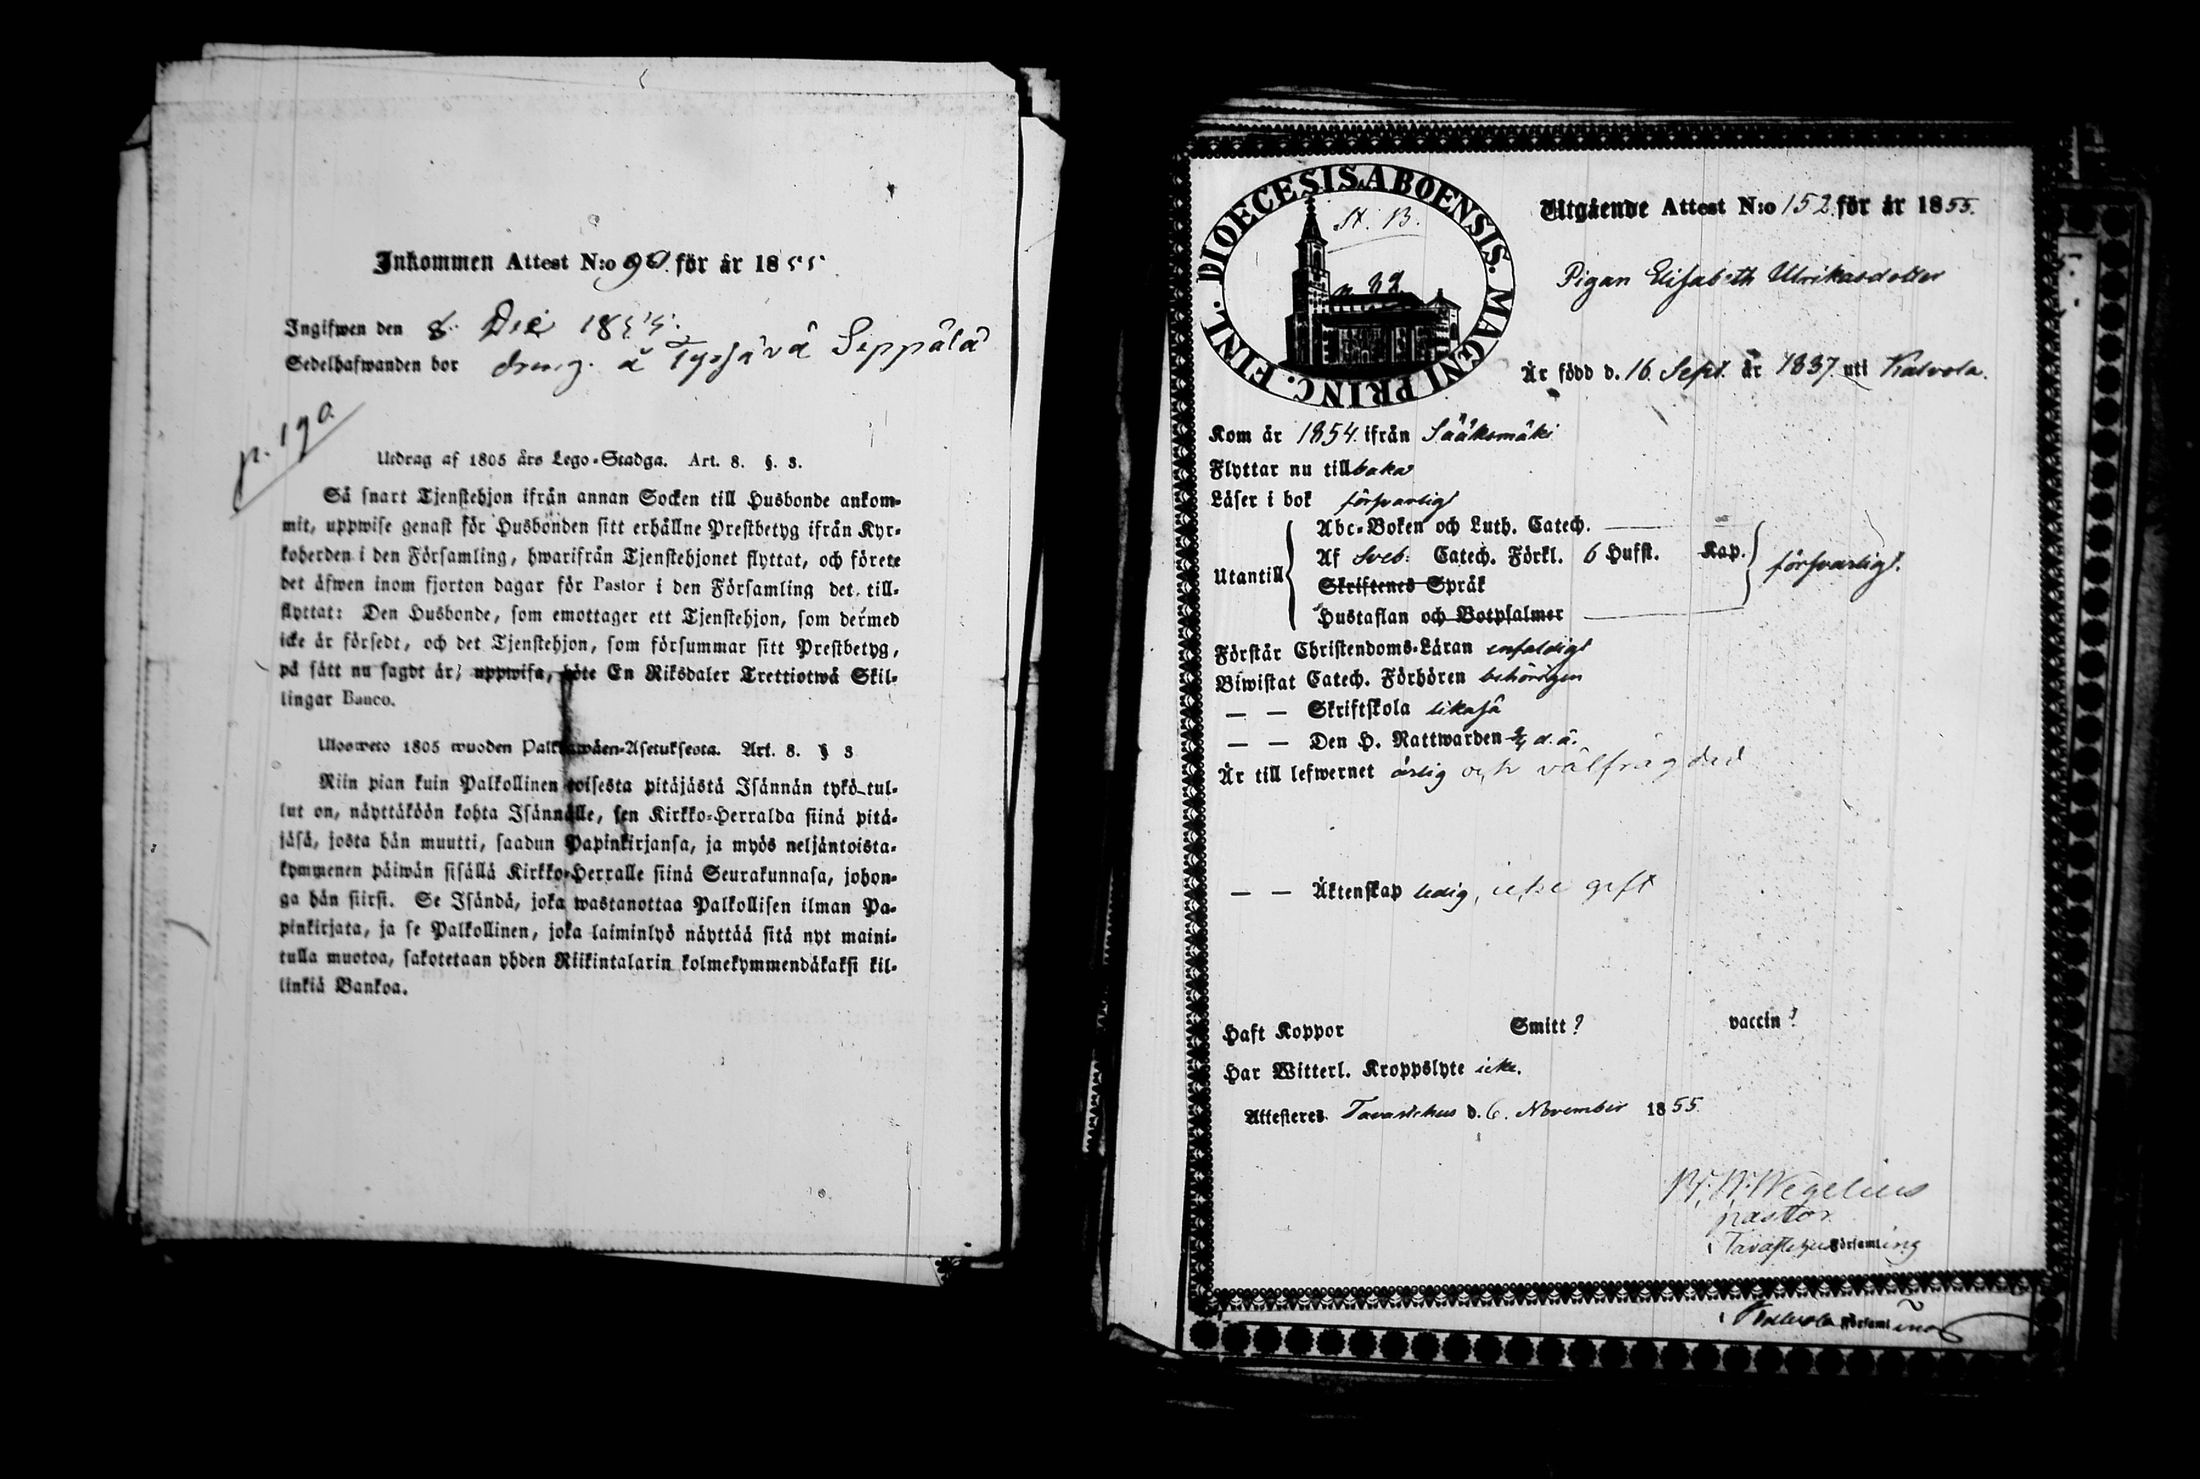 Inkommen Attest N:o 90. för år 1855
Ingifwen den 8. Dec 1855.
Sedelhafwanden bor dreng. å Tyrjävä Seppälä
p. 190
Utdrag af 1805 års Lego-Stadga. Art. 8. §. 3.
Så snart Tjenstehjon ifrån annan Socken till Husbonde ankom-
mit, uppwise genast för Husbonden sitt erhållne Prestbetyg ifrån Kyr-
koherden i den Församling, hwarifrån Tjenstehjonet flyttat, och förete
det äfwen inom fjorton dagar för Pastor i den Församling det till-
flyttat: Den Husbonde, som emottager ett Tjenstehjon, som dermed
icke är försedt, och det Tjenstehjon, som försummar sitt Prestbetyg,
på sätt nu sagdt är, uppwisa, böte En Riksdaler Trettiotwå Skil-
lingar Banco.
Ulosweto 1805 wuoden Palkkawäen-Asetuksesta. Art. 8. § 3
Niin pian kuin Palkollinen toisesta pitäjästä Isännän tykö tul-
lut on, näyttäköön kohta Isännälle, sen Kirkko-Herralda siinä pitä-
jäsä, josta hän muutti, saadun Papinkirjansa, ja myös neljäntoista-
kymmenen päiwän sisällä Kirkko-Herralle siinä Seurakunnasa, johon-
ga hän siirsi. Se Isändä, joka wastanottaa Palkollisen ilman Pa-
pinkirjata, ja se Palkollinen, joka laiminlyö näyttää sitä nyt maini-
tulla muotoa, sakotetaan yhden Riikintalarin kolmekymmendäkaksi kil-
linkiä Bankoa.
DIOECESIS ABOENSIS. MAGNI PRINC. FINL.
St. B.
Utgående Attest N:o 152 för år 1855.
Pigan Elisabeth Ulrikasdotter
Är född d. 16. Sept. år 1837. uti Kalvola.
Kom år 1854. ifrån Sääksmäki
Flyttar nu tillbaka
Läser i bok försvarligt
Utantill
Abc-Boken och Luth. Catech.
Af Sveb. Catech. Förkl. 6 Hufst. Kap.
Skriftenes Språk
Hustaflan och Botpsalmer
försvarligt.
Förstår Christendoms-Läran enfaldigt
Biwistat Catech. Förhören behörigen
— — Skriftskola likaså
— — Den H. Nattwarden d. å.
Är till lefwernet ärlig och välfrägdad
— — Äktenskap ledig, icke gift
Haft Koppor Smitt? vaccin?
Har Witterl. Kroppslyte icke.
Attesteres Tavastehus d. 6. November 1855.
Wegelius
pastor
i Tavastehus Församling
i Kalvola Församling